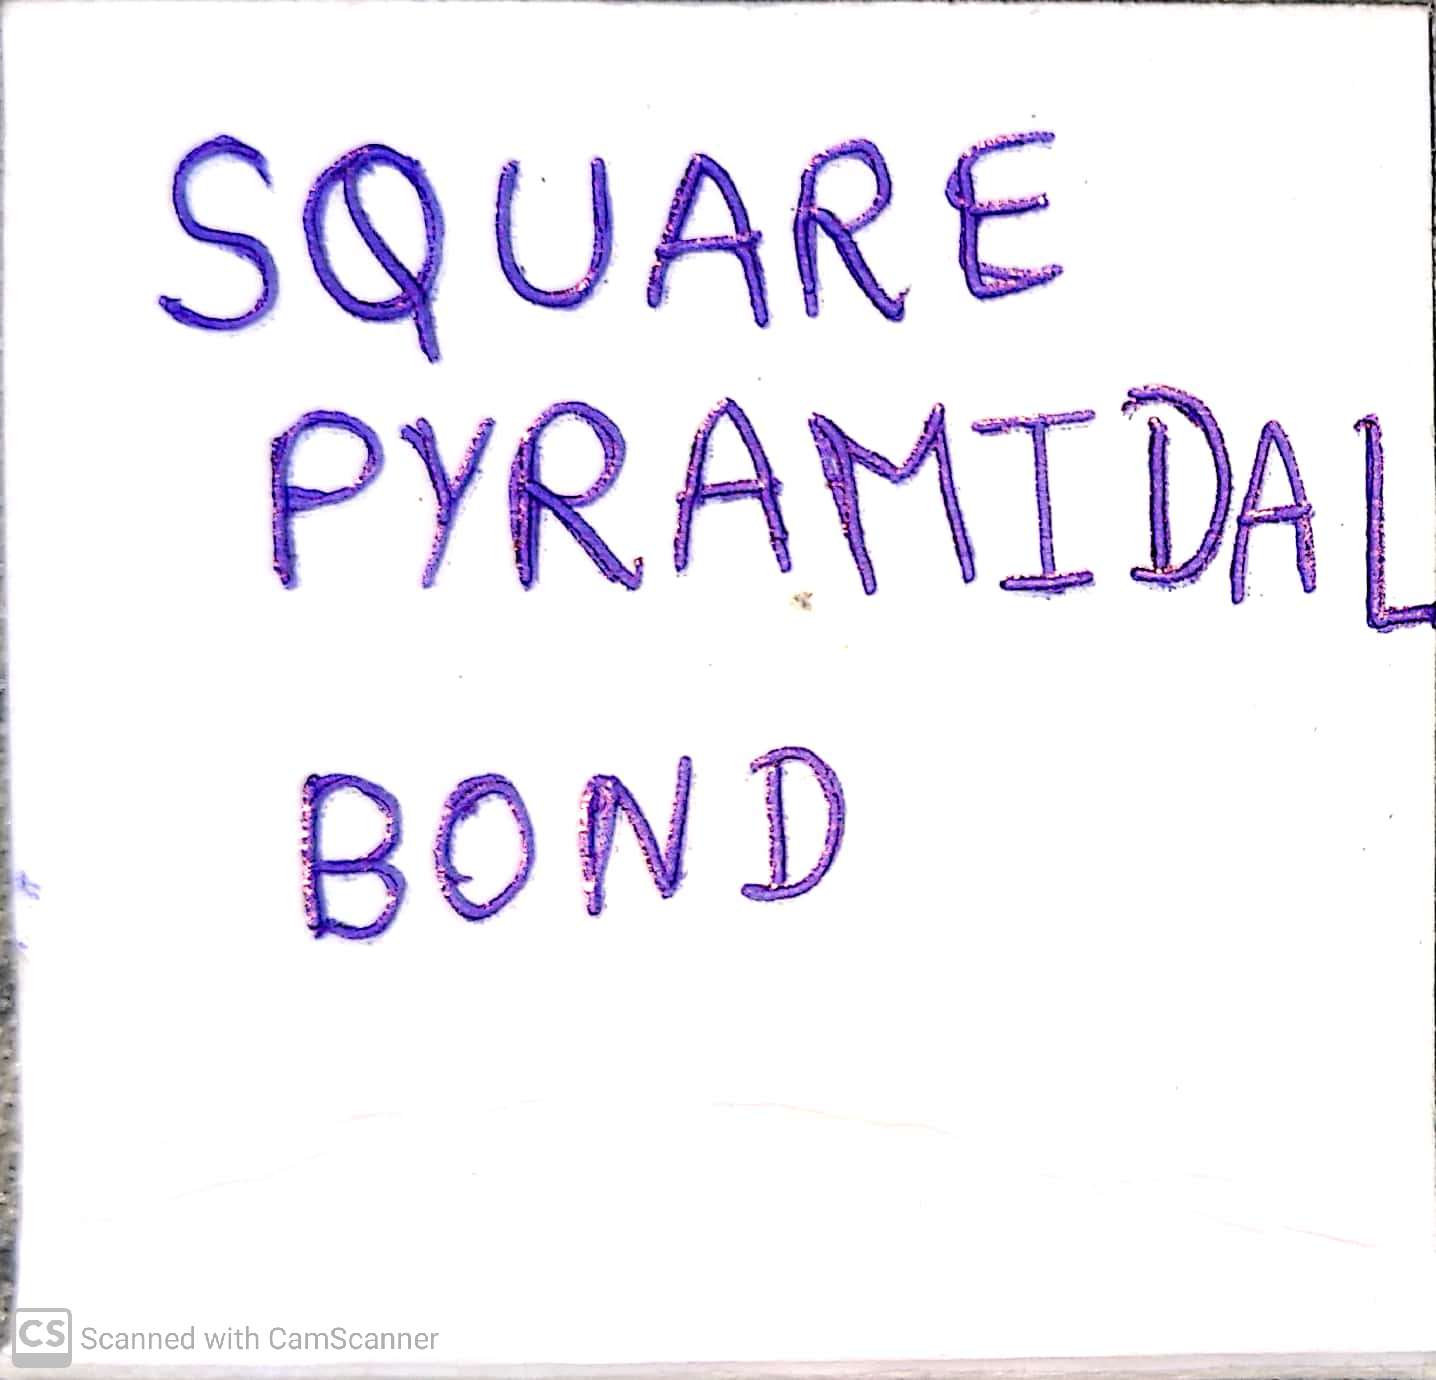 SQUARE
PYRAMIDAL
BOND
CS Scanned with CamScanner